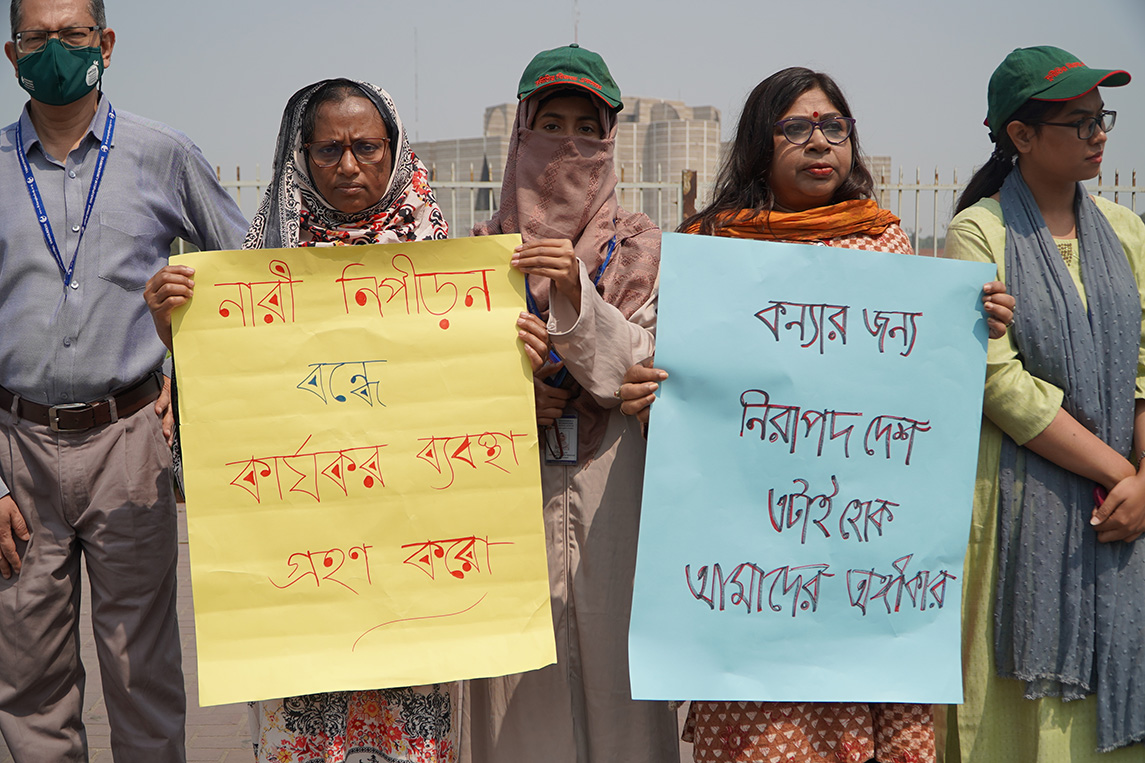 নারী নিপীড়ন
বন্ধে
কার্যকর ব্যবস্থা
গ্রহণ করো
কন্যার জন্য
নিরাপদ দেশ
এটাই হোক
আমাদের অঙ্গীকার